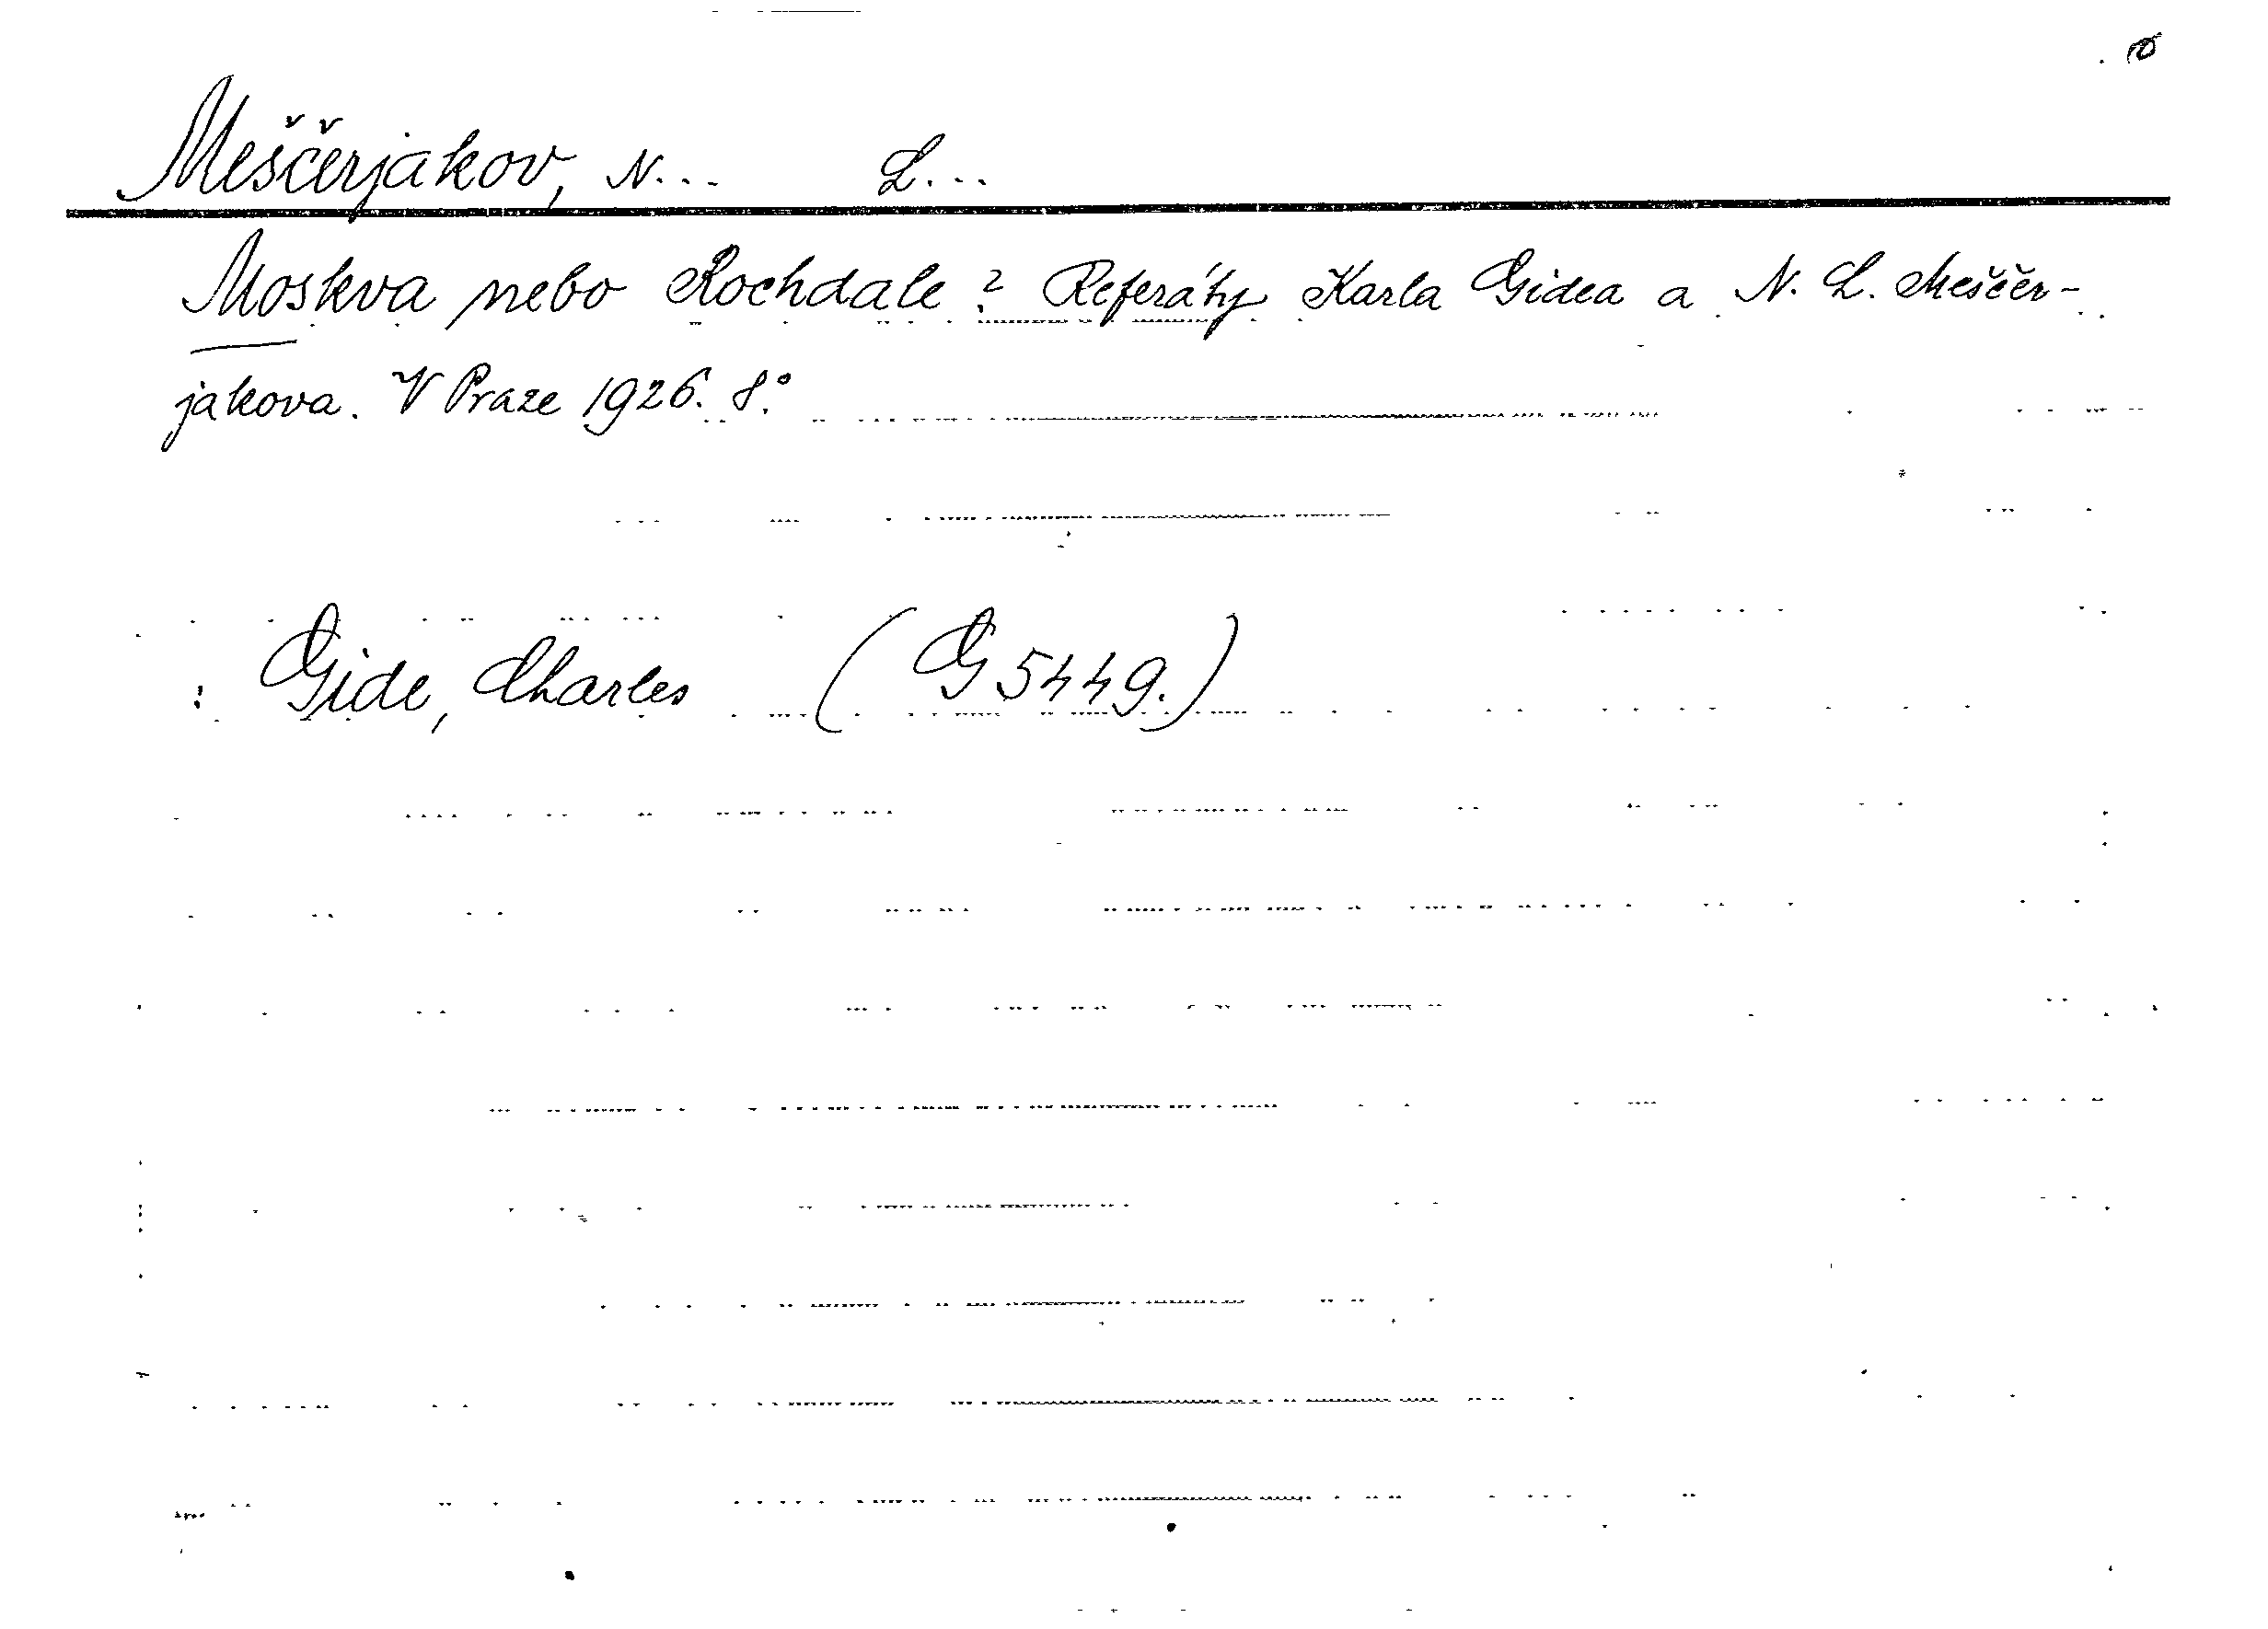 Meščerjakov, N... L...
Moskva nebo Rochdale? Referáty Karla Gidea a N. L. Meščer-
jakova. V Praze 1926. 8.°
Gide, Charles (G 5449.)